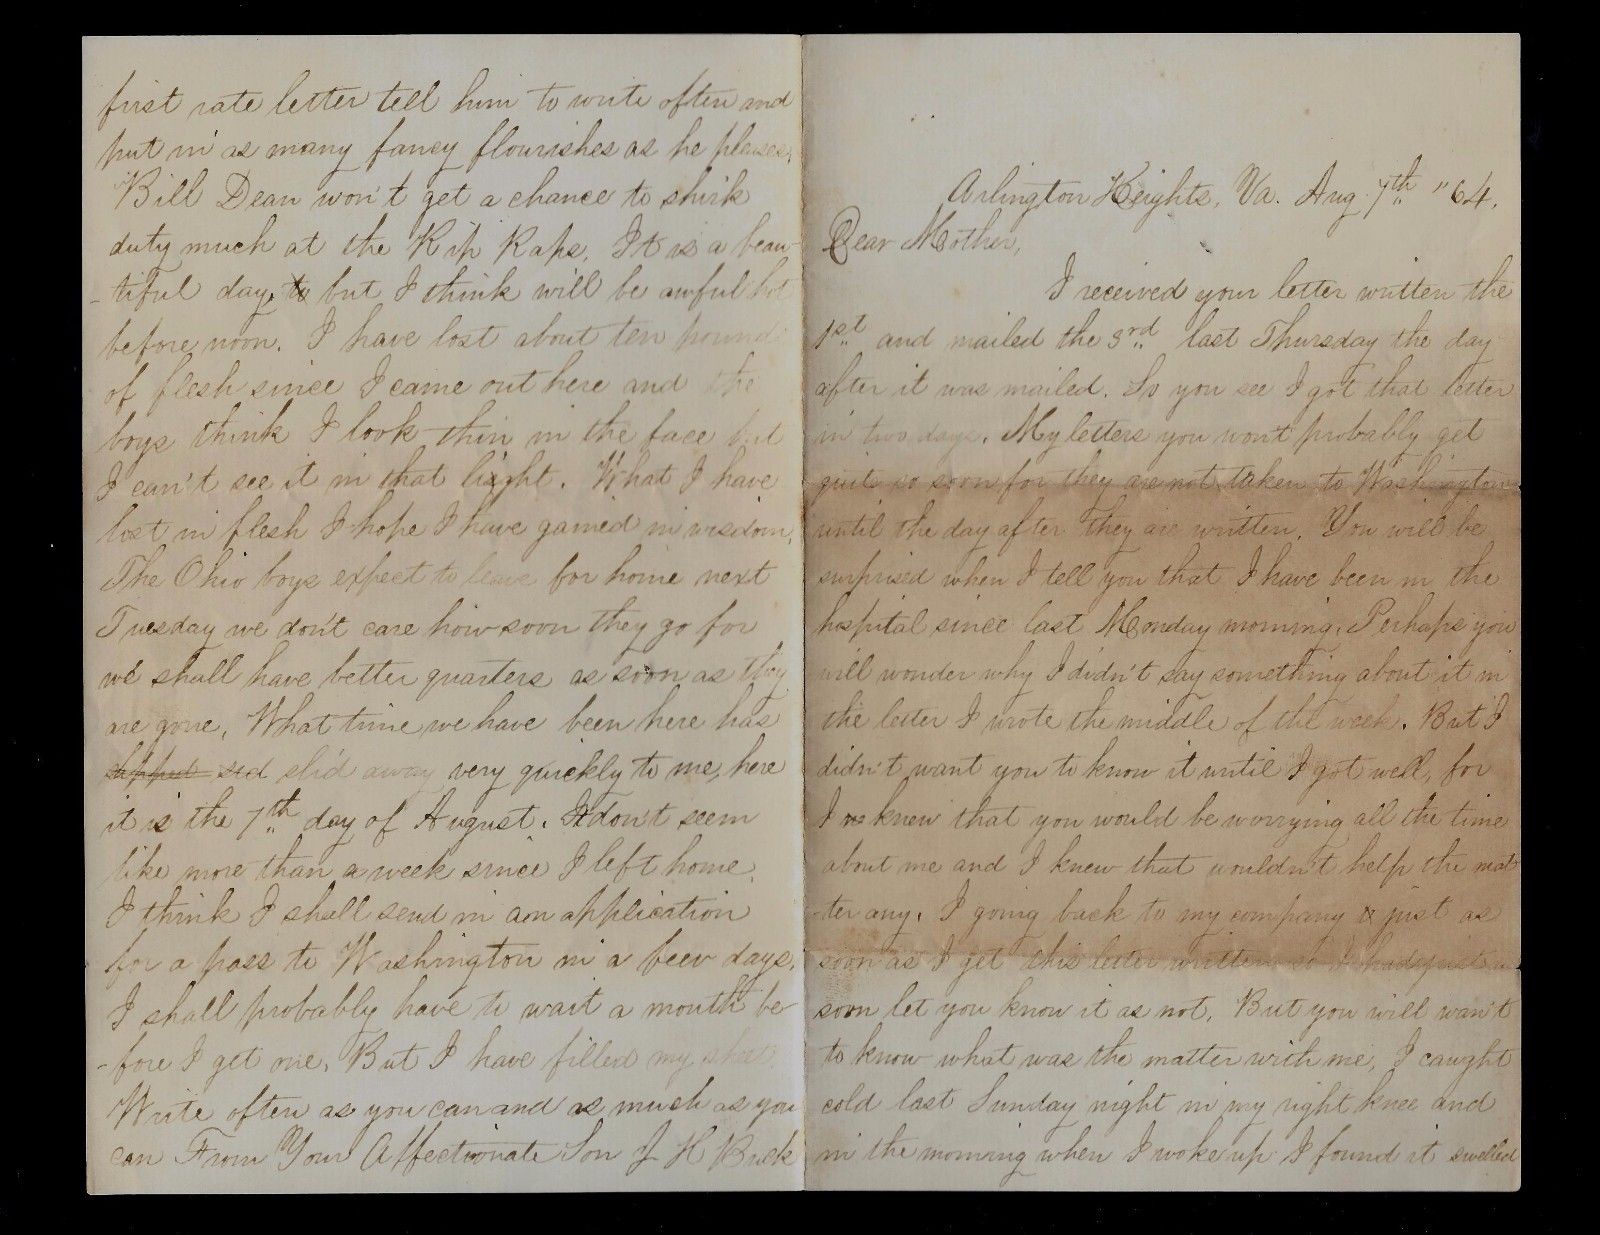 first rate letter tell him to write often and
put in as many fancy flourishes as he pleases.
Bill Dean won't get a chance to shirk
duty much at the Rip Raps. It is a beau-
-tiful day, to but I think will be awful hot
before noon. I have lost about ten pounds
of flesh since I came out here and the
boys think I look thin in the face but
I can't see it in that light. What I have
lost in flesh I hope I have gained in wisdom.
The Ohio boys expect to leave for home next
Tuesday we don't care how soon they go for
we shall have better quarters as soon as they
are gone. What time we have been here has
slipped sed slid away very quickly to me, here
it is the 7th day of August. It don't seem
like more than a week since I left home.
I think I shall send in an application
for a pass to Washington in a feew days.
I shall probably have to wait a month be
-fore I get one. But I have filled my sheet.
Write often as you can and as much as you
can From Your Affectionate Son J H Buck
Arlington Heights, Va. Aug 7th "64.
Dear Mother,
I received your letter written the
1st and mailed the 3rd last Thursday the day
after it was mailed. So you see I got that letter
in two days. My letters you wont probably get
quite so soon for they are not taken to Washington
until the day after they are written. You will be
surprised when I tell you that I have been in the
hospital since last Monday morning. Perhaps you
will wonder why I didn't say something about it in
the letter I wrote the middle of the week. But I
didn't want you to know it until I got well, for
I knew that you would be worrying all the time
about me and I knew that wouldn't help the mat
-ter any. I going back to my company just as
soon as I get this letter written so I had just as
soon let you know it as not. But you will wan't
to know what was the matter with me, I caught
cold last Sunday night in my right knee and
in the morning when I woke up I found it swelled